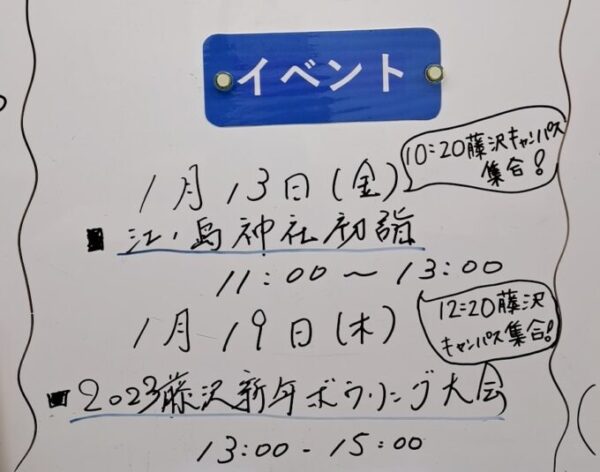 イベント
1月13日(金)
10:20藤沢キャンパス
集合!
■江ノ島神社初詣
11:00〜13:00
1月19日(木)
12:20藤沢
キャンパス集合!
■2023藤沢新年ボウリング大会
13:00-15:00